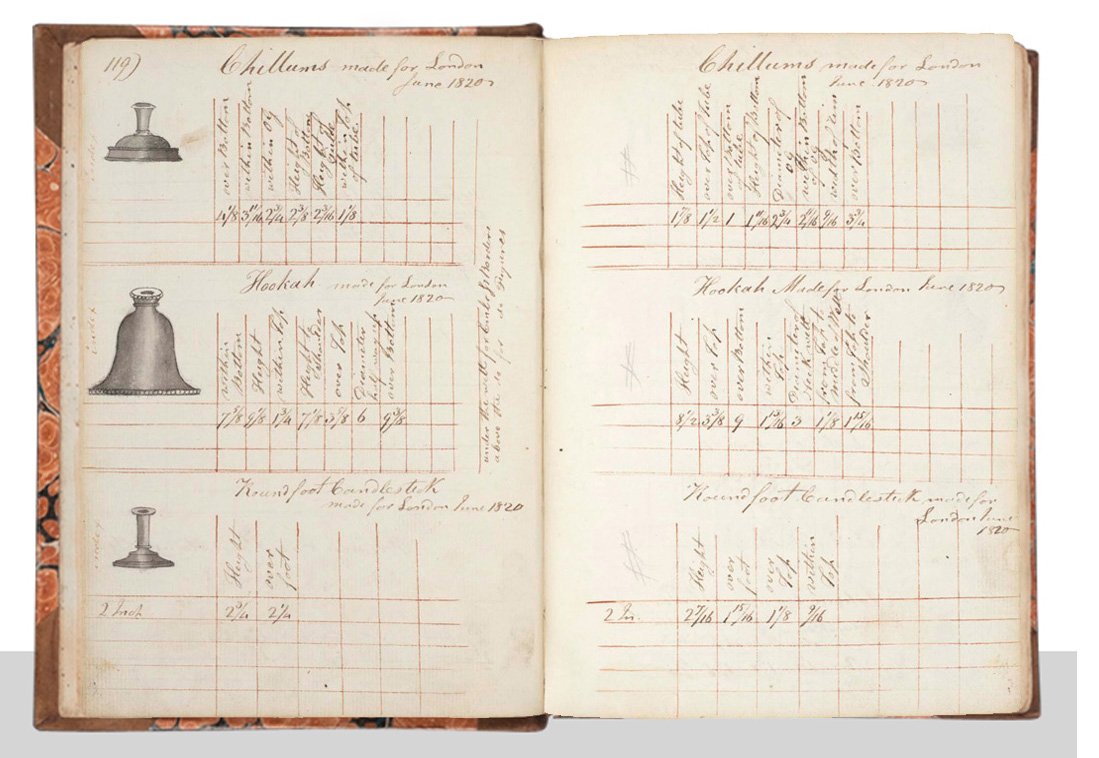 119)
Chillums made for London
June 1820
over Bottom
within Bottom
within Og
Height of Bottom
Height of
within Top of tube
4 1/8 3 11/16 2 3/4 2 3/8 2 3/16 1 1/8
Hookah made for London
June 1820
within Bottom
Height
within Top
Height to Shoulder
over Top
Diameter half way up
over Bottom
7 5/8 9 1/8 1 3/4 7 1/8 3 5/8 6 9 3/8
under the
above the do for do Figures
Round foot Candlestick
made for London June 1820
Height
over foot
2 Inch 2 3/4 2 1/4
Chillums made for London
June 1820
Height of tube
over Top of tube
over Bottom of tube
Height of Bottom
Diameter of Og
within Bottom of Og
width of Rim
over Bottom
1 7/8 1 1/2 1 1 11/16 2 3/4 2 11/16 9/16 3 3/4
Hookah Made for London June 1820
Height
over Top
over Bottom
within Top
Diameter of
from Top to middle of
from to Shoulder
8 1/2 3 3/8 9 1 13/16 3 1 1/8 1 15/16
Round foot Candlestick made for
London June
1820
Height
over foot
over Top
within Top
2 In. 2 7/16 1 15/16 1 1/8 9/16